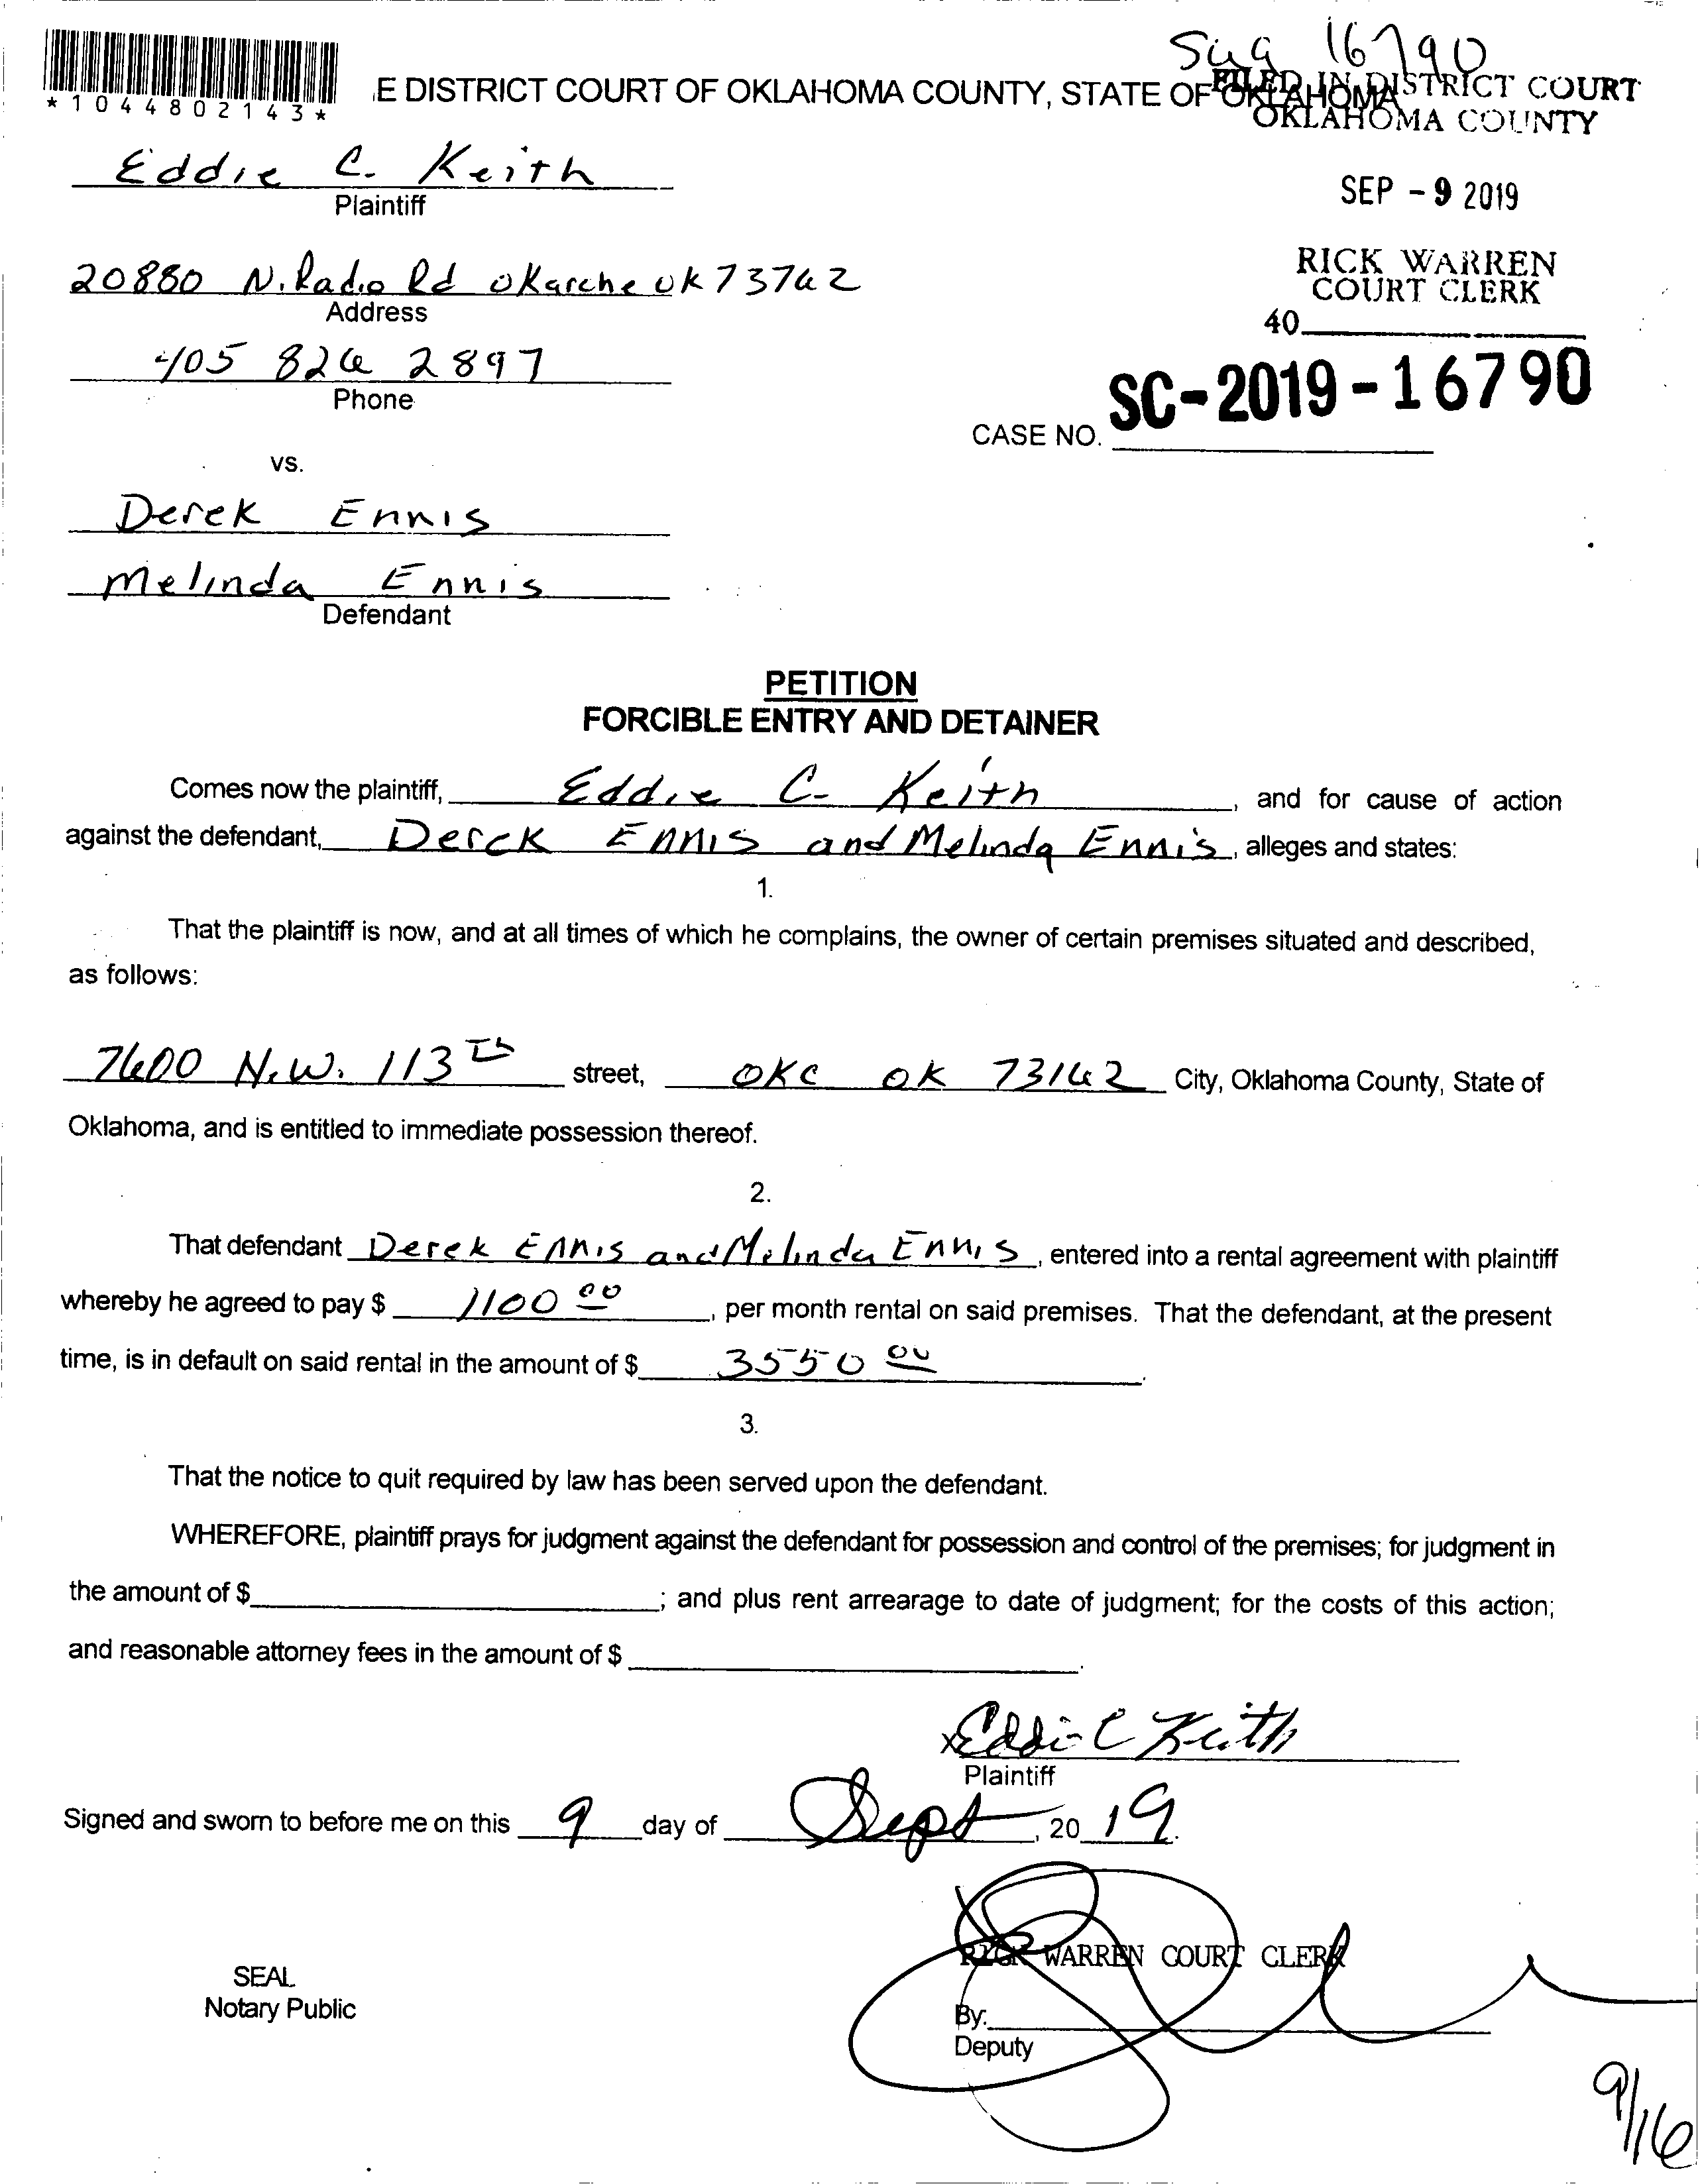 Sug 16790
E DISTRICT COURT OF OKLAHOMA COUNTY, STATE OF OKLAHOMA
FILED IN DISTRICT COURT
OKLAHOMA COUNTY
*1044802143*
Eddie C. Keith
Plaintiff
SEP - 9 2019
20880 N. Radio Rd Okarche OK 73762
Address
RICK WARREN
COURT CLERK
40
405 826 2897
Phone
CASE NO. SC-2019-16790
vs.
Derek Ennis
Melinda Ennis
Defendant
PETITION
FORCIBLE ENTRY AND DETAINER
Comes now the plaintiff, Eddie C. Keith, and for cause of action
against the defendant, Derek Ennis and Melinda Ennis, alleges and states:
1.
That the plaintiff is now, and at all times of which he complains, the owner of certain premises situated and described,
as follows:
7600 N.W. 113Th street, OKC OK 73162 City, Oklahoma County, State of
Oklahoma, and is entitled to immediate possession thereof.
2.
That defendant Derek Ennis and Melinda Ennis, entered into a rental agreement with plaintiff
whereby he agreed to pay $ 1100 00, per month rental on said premises. That the defendant, at the present
time, is in default on said rental in the amount of $ 3550 00.
3.
That the notice to quit required by law has been served upon the defendant.
WHEREFORE, plaintiff prays for judgment against the defendant for possession and control of the premises; for judgment in
the amount of $ ; and plus rent arrearage to date of judgment; for the costs of this action;
and reasonable attorney fees in the amount of $ .
x Eddie C Keith
Plaintiff
Signed and sworn to before me on this 9 day of Sept, 20 19.
RICK WARREN COURT CLERK
SEAL
Notary Public
By:
Deputy
9/16